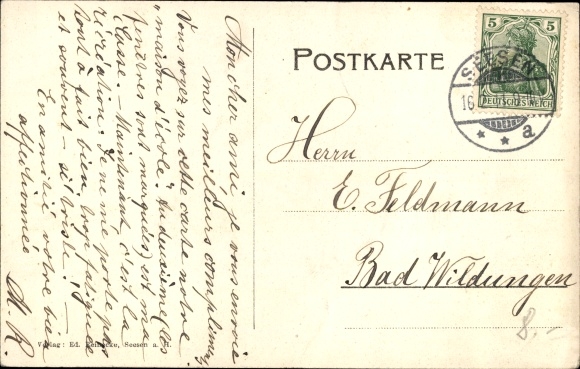 Mon cher ami je vous envoie
mes meilleurs compliments,
Vous voyez sur cette carte notre
"maison d'école". Au deuxième (les
fenêtres sont marquées) est ma
classe. - Maintenant c'est la
récréation. Je ne me porte pas
tout à fait bien, trop fatiguée
et souvent - si triste! -
En amitié votre bien
affectionnée
A. R.
POSTKARTE
5 5
DEUTSCHES REICH
SEESEN
16
* * a
Herrn
E. Feldmann
Bad Wildungen
8.-
Verlag: Ed. Seesen a. H.